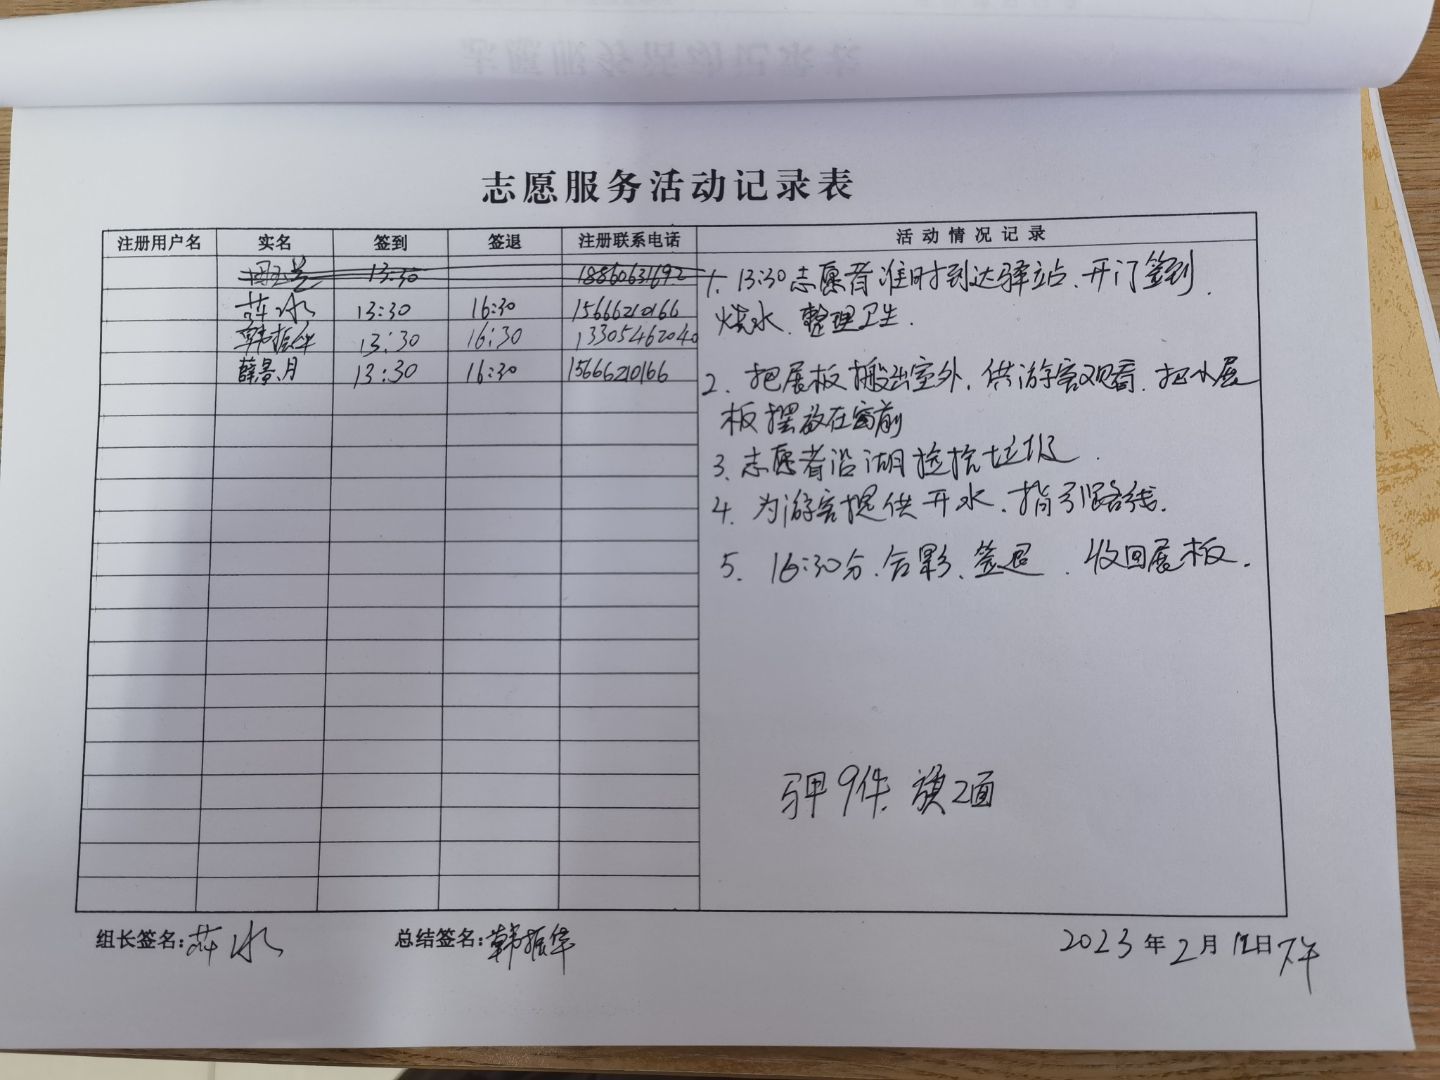 志愿服务活动记录表
注册用户名 实名 签到 签退 注册联系电话 活动情况记录
13:30 18860631692
萍水 13:30 16:30 15666210166
韩振华 13:30 16:30 13305462040
薛景月 13:30 16:30 15666210166
1. 13:30志愿者准时到达驿站、开门签到、
烧水、整理卫生.
2. 把展板搬出室外，供游客观看、把小展
板摆放在窗前
3. 志愿者沿湖捡垃圾.
4. 为游客提供开水、指引路线.
5. 16:30分、合影、签退、收回展板.
马甲9件、旗2面
组长签名:萍水 总结签名:韩振华 2023年2月12日下午